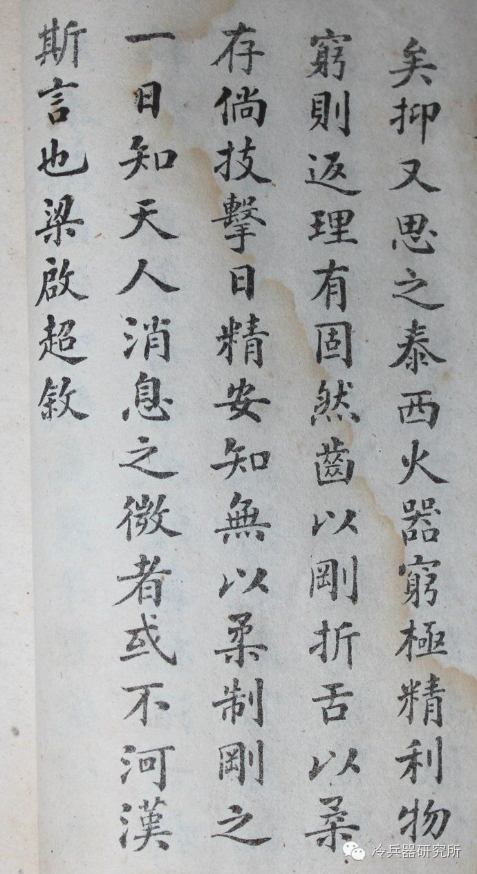 矣抑又思之泰西火器窮極精利物
窮則返理有固然齒以剛折舌以柔
存倘技擊日精安知無以柔制剛之
一日知天人消息之微者或不河漢
斯言也梁啟超敘
冷兵器研究所